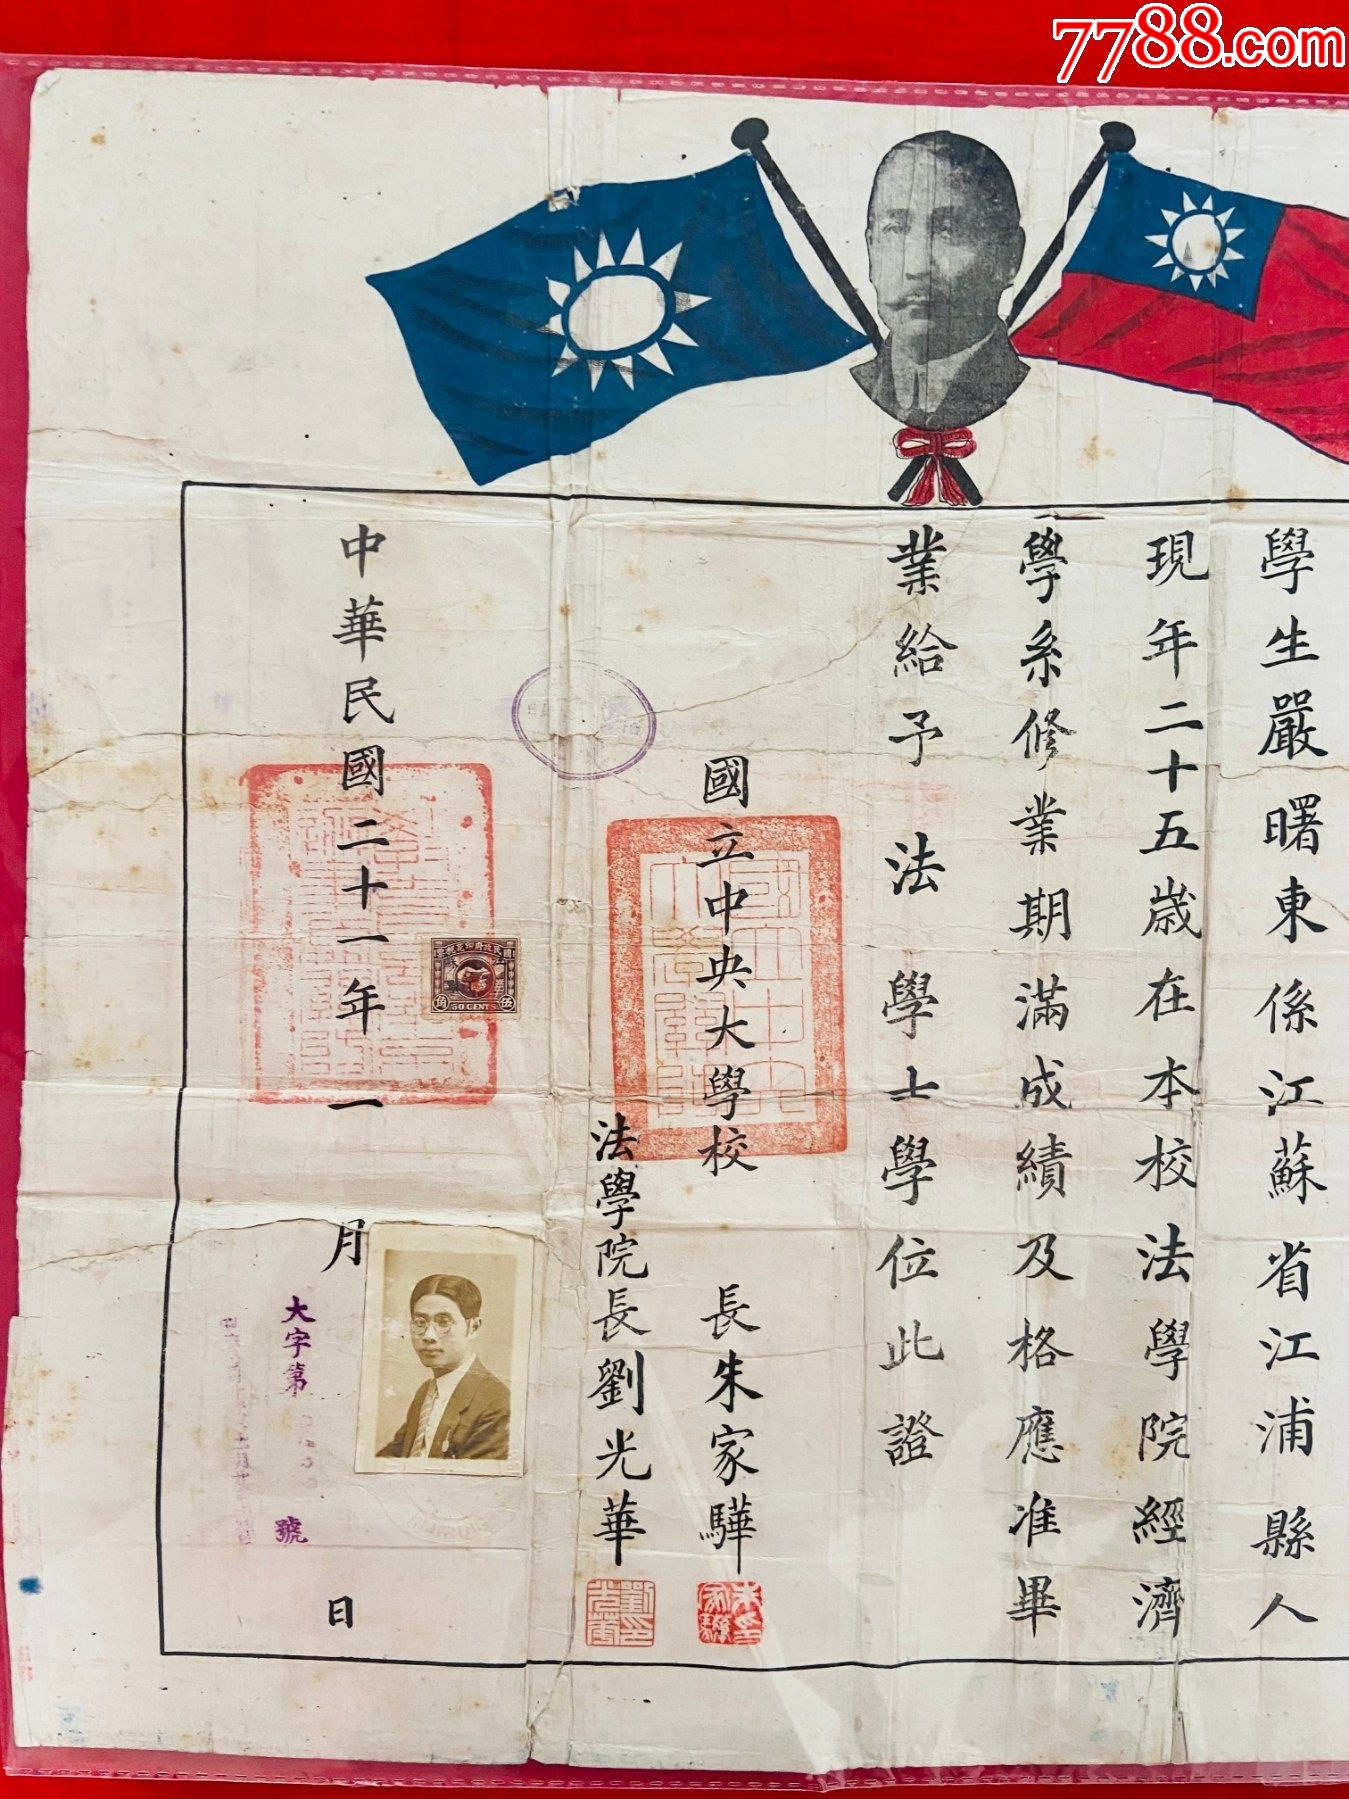 7788.com
學生嚴曙東係江蘇省江浦縣人
現年二十五歲在本校法學院經濟
學系修業期滿成績及格應准畢
業給予法學士學位此證
國立中央大學校長朱家驊
法學院長劉光華
中華民國二十一年一月日
大字第號
50 CENTS
伍角